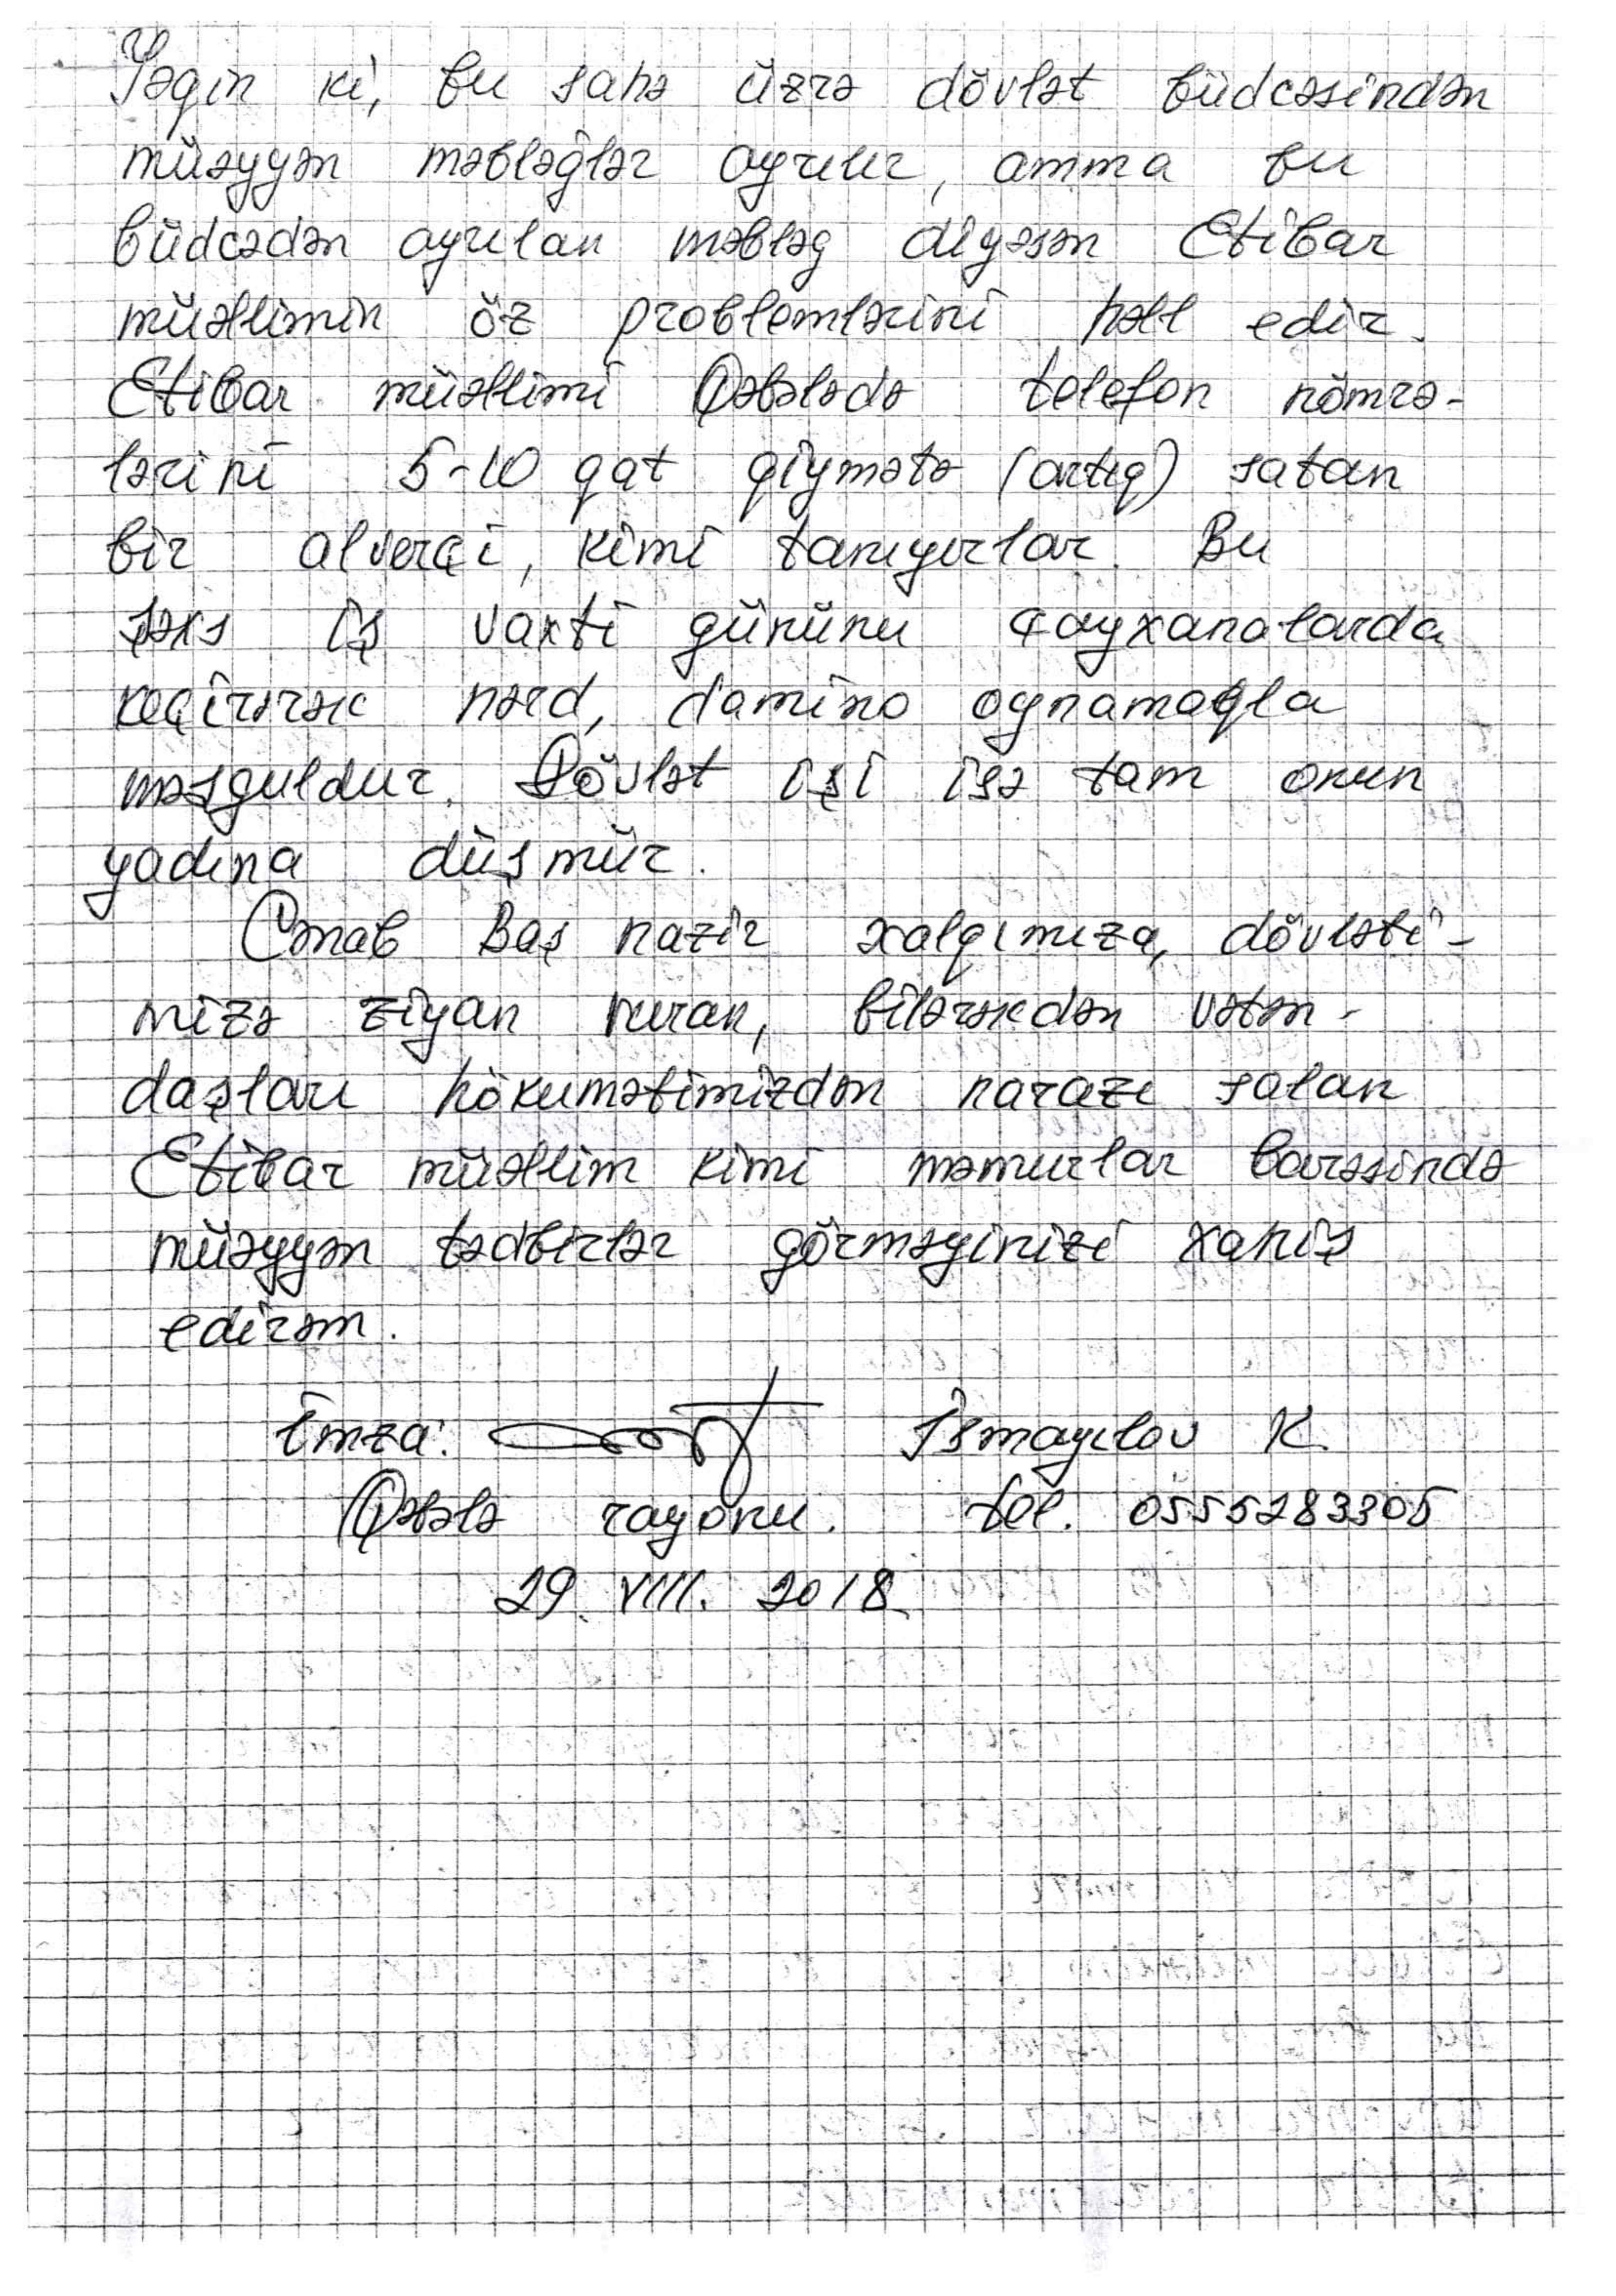 Yəqin ki, bu sahə üzrə dövlət büdcəsindən
müəyyən məbləğlər ayrılır, amma bu
büdcədən ayrılan məbləg diyəsən Etibar
müəllimin öz problemlərini həll edir.
Etibar müəllimi Qəbələdə telefon nömrə-
lərini 5-10 qat qiymətə (artıq) satan
bir alverçi, kimi tanıyırlar. Bu
şəxs iş vaxtı gününü çayxanalarda
keçirərək nərd, damino oynamaqla
məşguldur. Dövlət işi isə tam onun
yadına düşmür.
Cənab Baş nazir xalqımıza, dövləti-
mizə ziyan vuran, bilərəkdən vətən-
daşları hökumətimizdən narazı salan
Etibar müəllim kimi məmurlar barəsində
müəyyən tədbirlər görməyinizi xahiş
edirəm.
İmza: İsmayılov K.
Qəbələ rayonu. tel. 0555283305
29. VIII. 2018